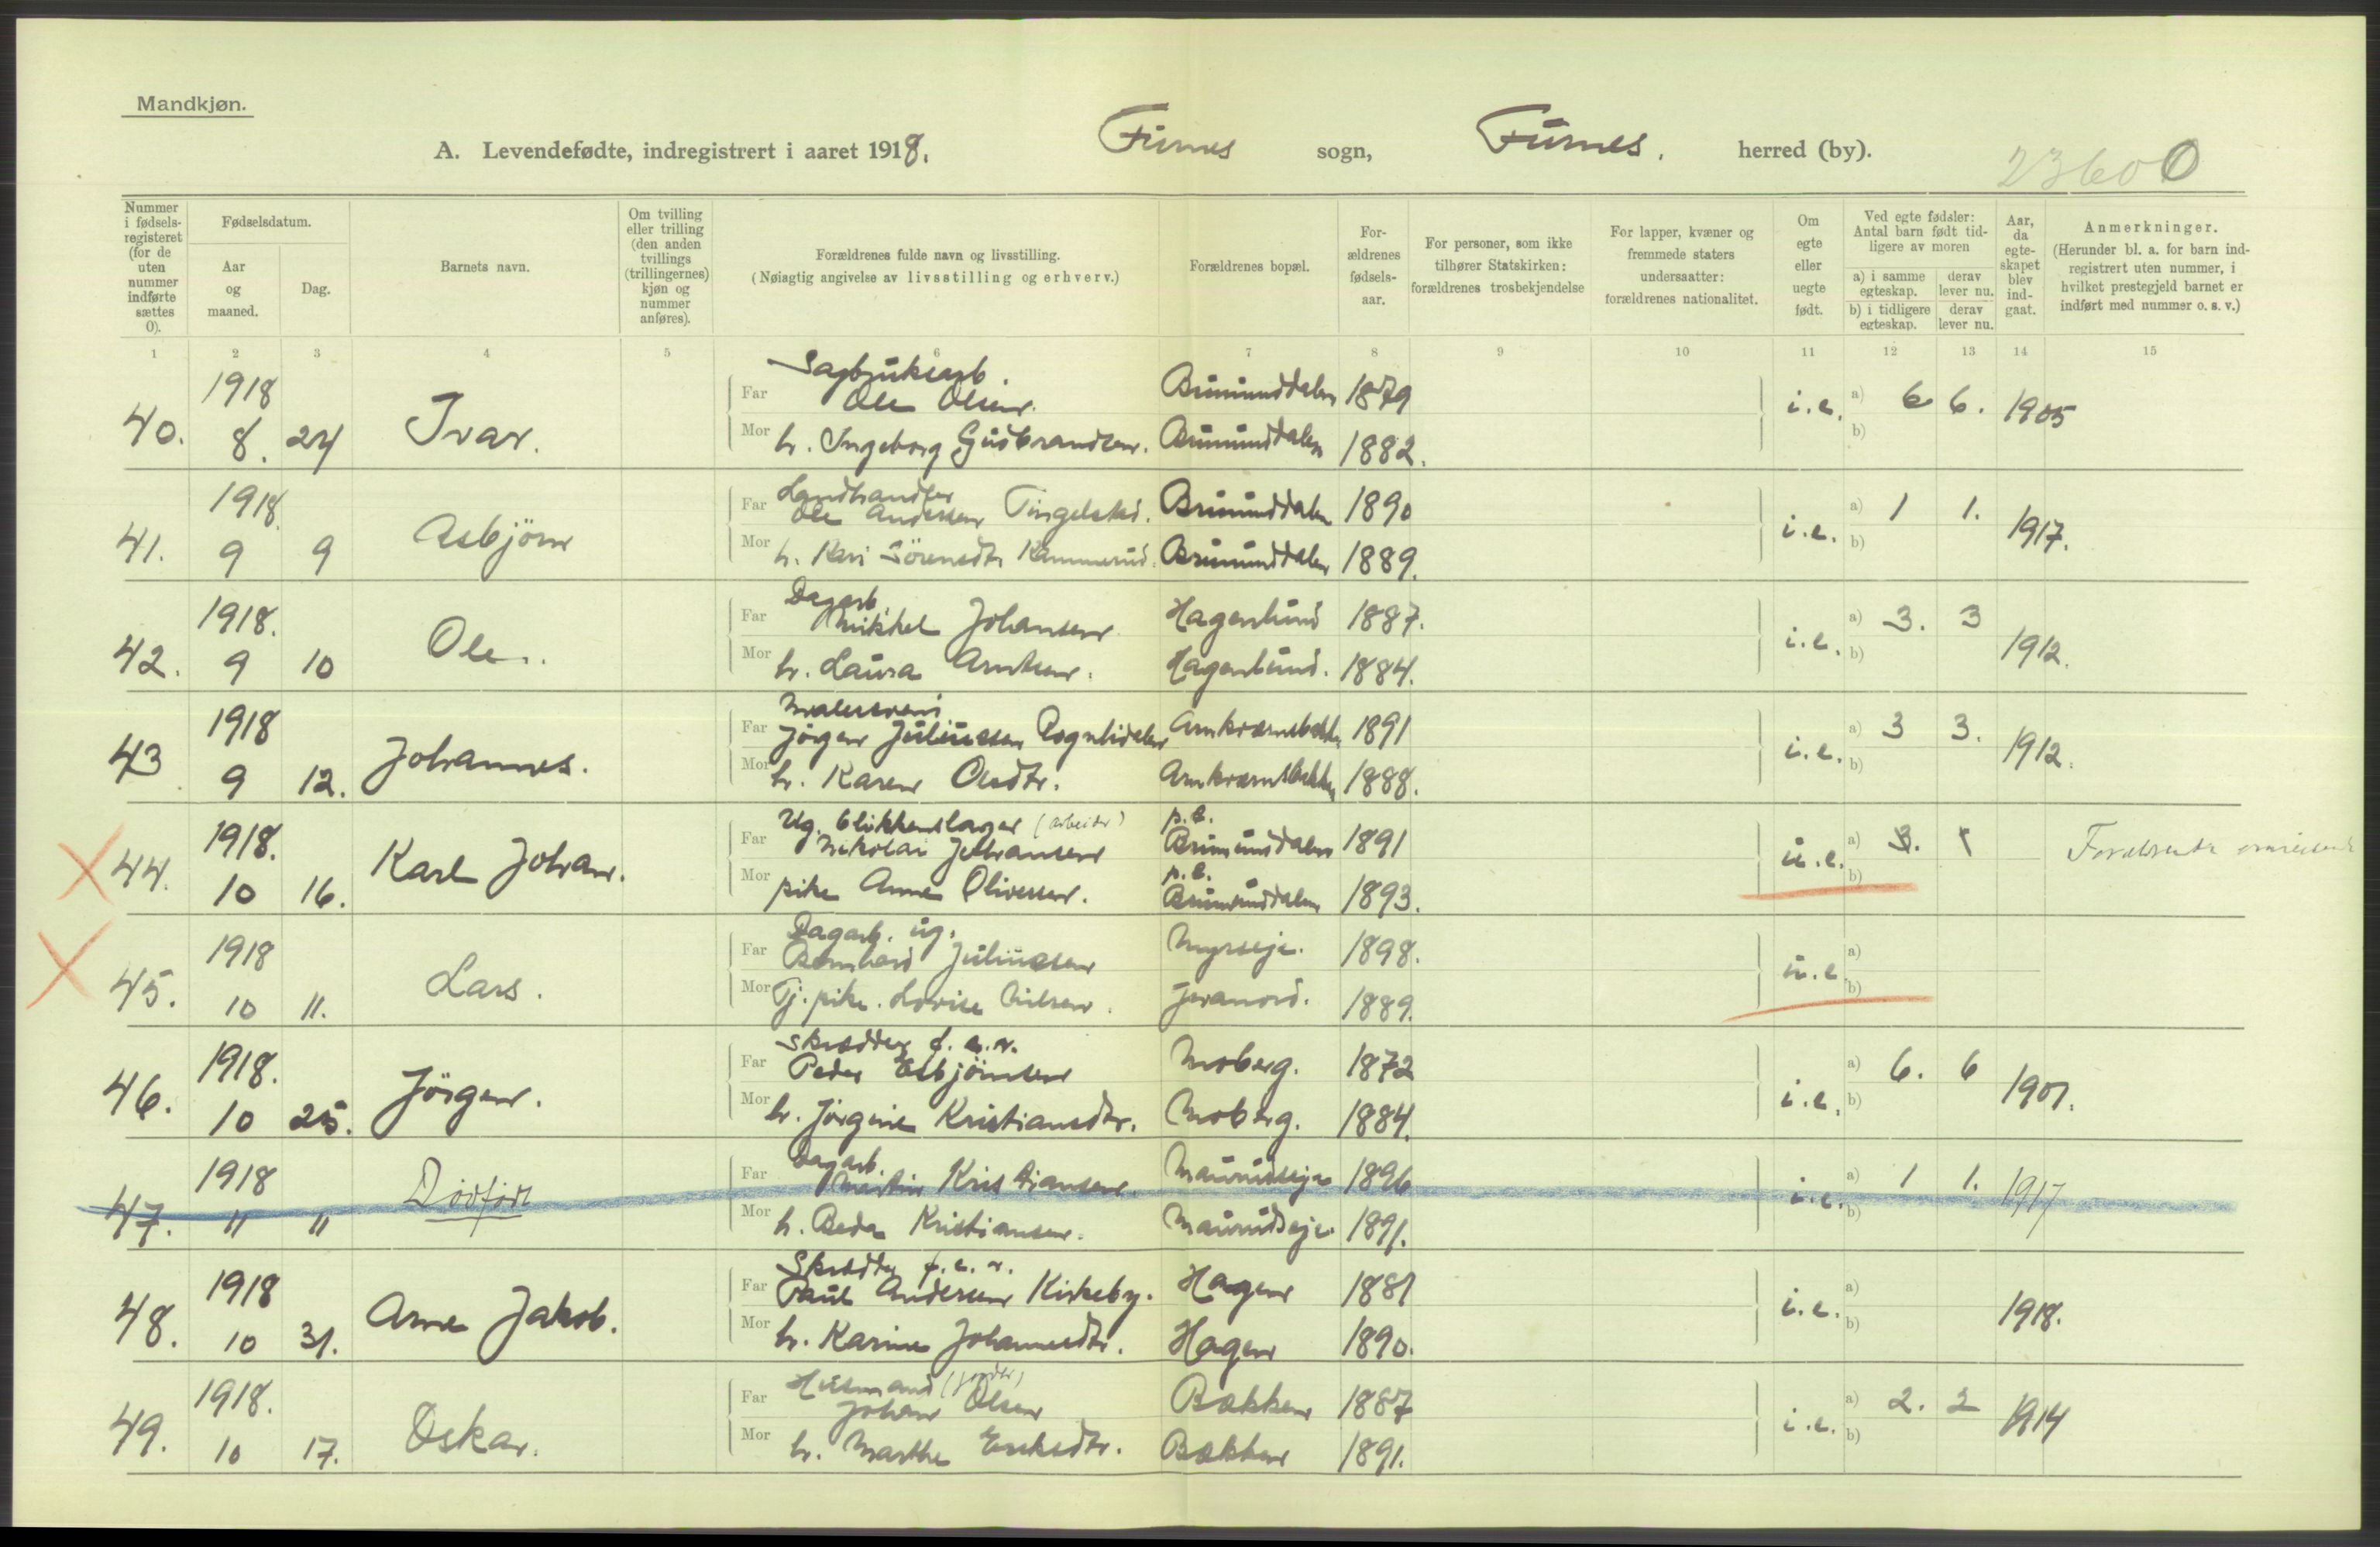 Mandkjøn.
A. Levendefødte, indregistrert i aaret 1918. Furnes sogn, Furnes. herred (by). 23600
Nummer i fødselsregisteret (for de uten nummer indførte sættes 0).
Fødselsdatum.
Aar og maaned.
Dag.
Barnets navn.
Om tvilling eller trilling (den anden tvillings (trillingernes) kjøn og nummer anføres).
Forældrenes fulde navn og livsstilling.
(Nøiagtig angivelse av livsstilling og erhverv.)
Forældrenes bopæl.
Forældrenes fødselsaar.
For personer, som ikke tilhører Statskirken: forældrenes trosbekjendelse
For lapper, kvæner og fremmede staters undersaatter: forældrenes nationalitet.
Om egte eller uegte født.
Ved egte fødsler: Antal barn født tidligere av moren
a) i samme egteskap. derav lever nu.
b) i tidligere egteskap. derav lever nu.
Aar, da egteskapet blev indgaat.
Anmerkninger.
(Herunder bl. a. for barn indregistrert uten nummer, i hvilket prestegjeld barnet er indført med nummer o. s. v.)
1 2 3 4 5 6 7 8 9 10 11 12 13 14 15
40. 1918 8. 24 Ivar.
Far Sagbruksarb. Ole Olsen. Brumunddalen 1879
Mor h. Ingeborg Gudbrandsen. Brumunddalen 1882.
i.e. a) 6 6. 1905
b)
41. 1918. 9 9 Asbjörn
Far Landhandler Ole Andersen Tingelstad. Brumunddalen 1890
Mor h. Kari Sörensdtr Kammerud. Brumunddalen 1889.
i.e. a) 1 1. 1917.
b)
42. 1918. 9 10 Ole.
Far Dagarb. Mikkel Johansen Hagenlund 1887.
Mor h. Laura Arntsen. Hagenlund. 1884.
i.e. a) 3. 3 1912.
b)
43 1918 9 12. Johannes.
Far Malersvend Jörgen Juliussen Rognlidalen Arnkværnsbakken 1891
Mor h. Karen Olsdtr. Arnkværnsbakken 1888.
i.e. a) 3 3. 1912.
b)
44. 1918. 10 16. Karl Johan.
Far Ug. blikkenslager (arbeider) Nikolai Johansen p.t. Brumunddalen 1891
Mor pike Anna Oliversen. p.t. Brumunddalen 1893.
u.e. a) 3. 1 Forældrene omreisende
b)
45. 1918 10 11. Lars.
Far Dagarb. ug. Bernhard Juliussen Myrseje. 1898.
Mor Tj. pike. Lovise Nilsen. Jevanord. 1889.
u.e. a)
b)
46. 1918. 10 25. Jörgen.
Far Skrædder f. e. r. Peder Esbjörnsen Moberg. 1872
Mor h. Jörgine Kristiansdtr. Moberg. 1884.
i.e. a) 6. 6 1901.
b)
47. 1918 " " Dödfödt
Far Dagarb. Martin Kristiansen. Maurudseje 1896
Mor h. Beda Kristiansen. Maurudseje 1891.
i.e. a) 1 1. 1917
b)
48. 1918 10 31. Arne Jakob.
Far Skrædder f. e. r. Paul Andersen Kirkeby. Hagen 1881
Mor h. Karine Johannesdtr. Hagen 1890.
i.e. a) 1918.
b)
49. 1918. 10 17. Oskar.
Far Husmand (jordbr) Johan Olsen Bakken 1887
Mor h. Marthe Eriksdtr. Bakken 1891.
i.e. a) 2. 2 1914
b)